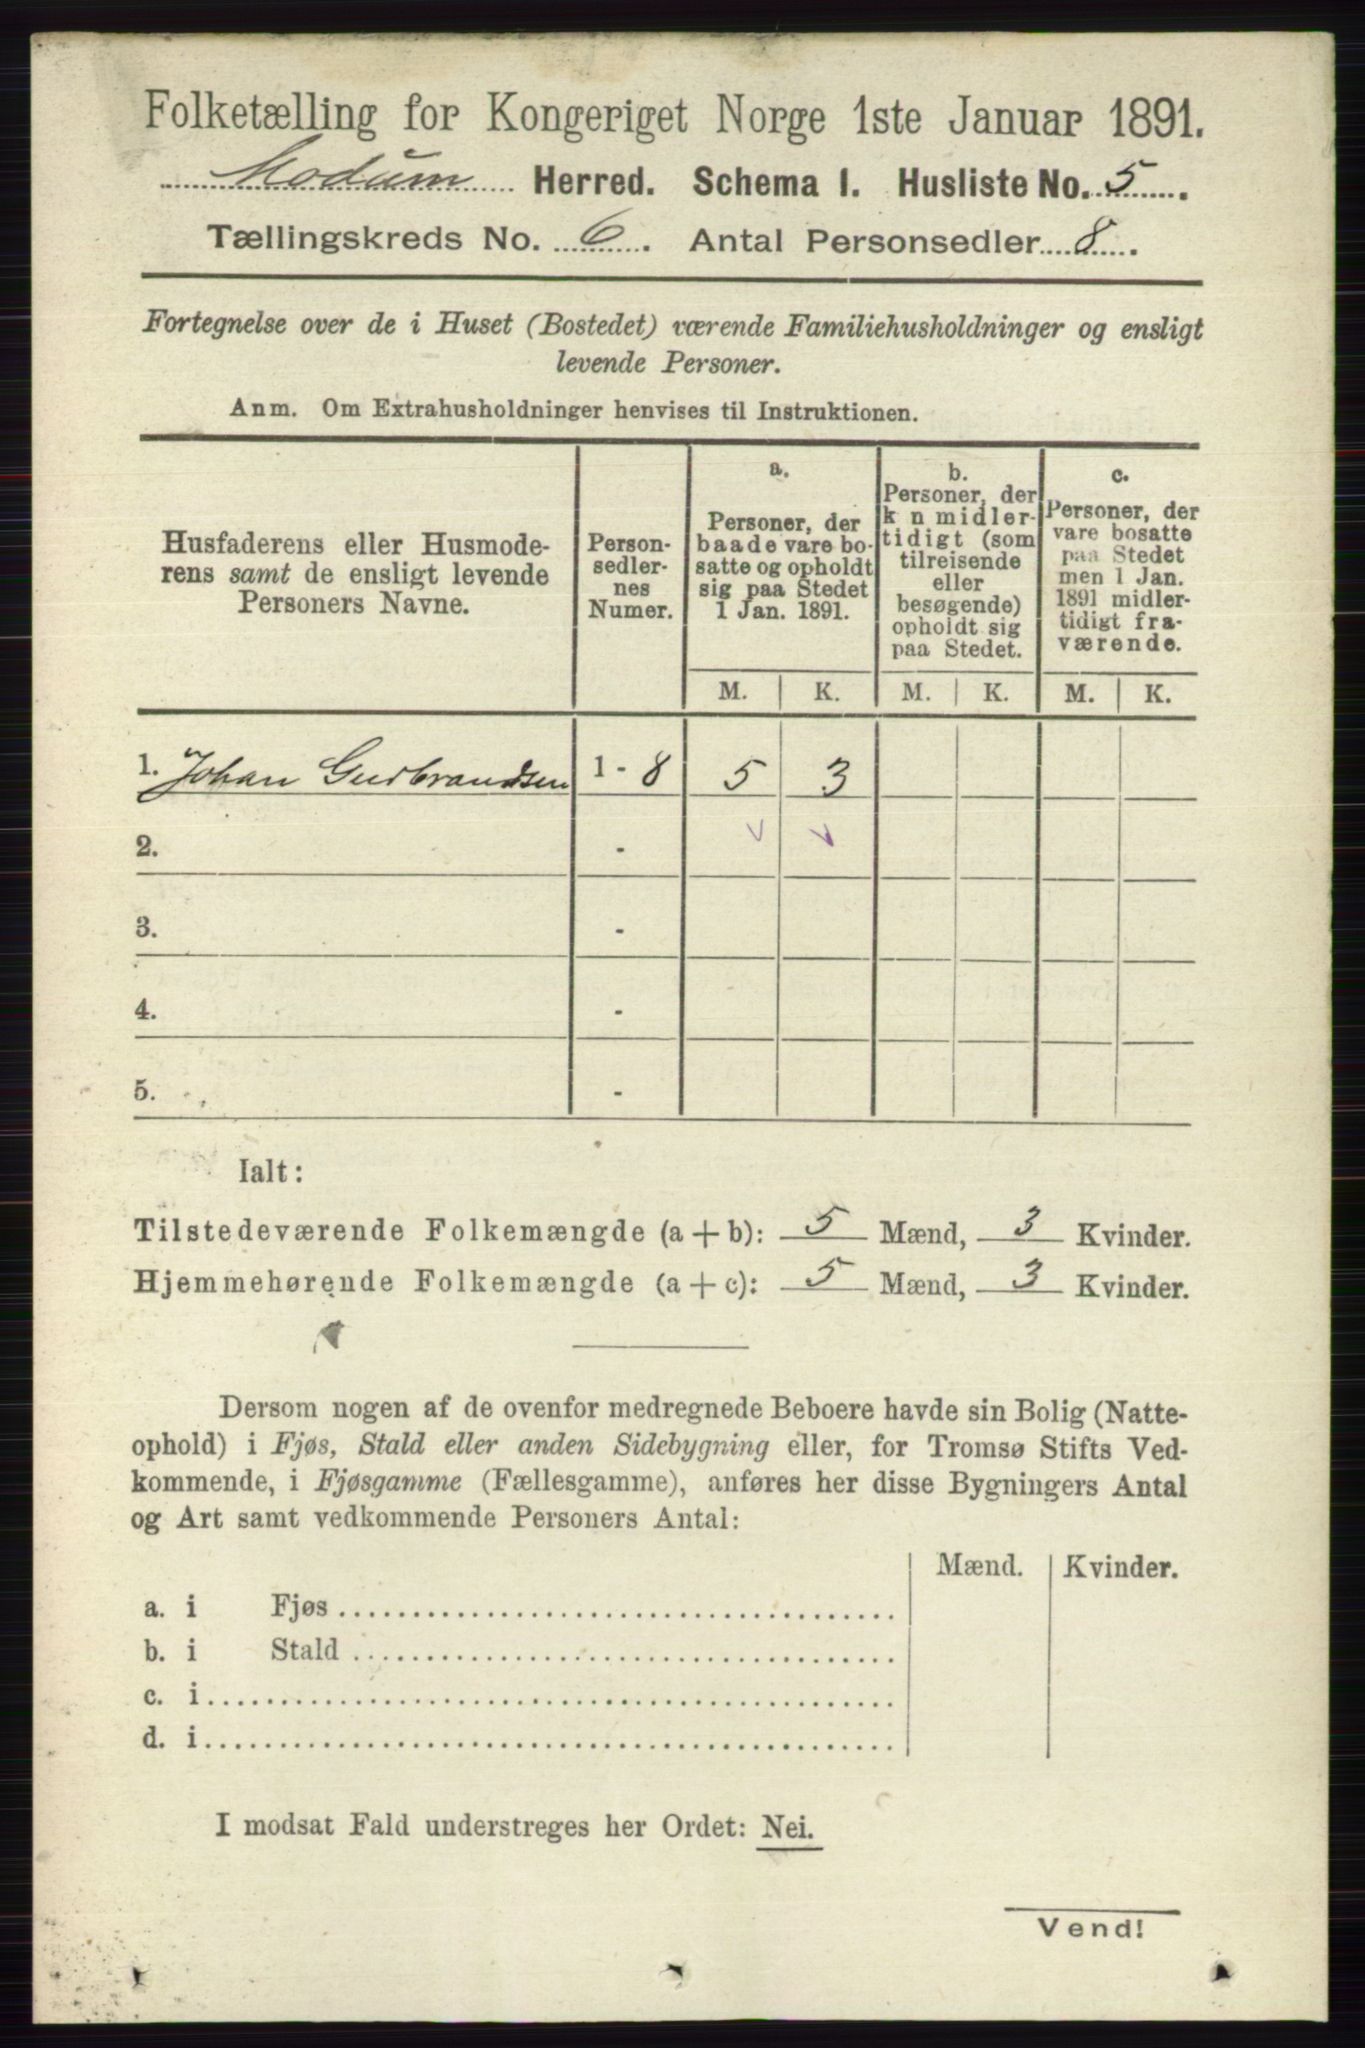 Folketælling for Kongeriget Norge 1ste Januar 1891.
Modum Herred. Schema 1. Husliste No. 5.
Tællingskreds No. 6. Antal Personsedler 8.
Fortegnelse over de i Huset (Bostedet) værende Familiehusholdninger og ensligt
levende Personer.
Anm. Om Extrahusholdninger henvises til Instruktionen.
Husfaderens eller Husmode-
rens samt de ensligt levende
Personers Navne.
Person-
sedler-
nes
Numer.
a.
Personer, der
baade vare bo-
satte og opholdt
sig paa Stedet
1 Jan. 1891.
b.
Personer, der
k n midler-
tidigt (som
tilreisende
eller
besøgende)
opholdt sig
paa Stedet.
c.
Personer, der
vare bosatte
paa Stedet
men 1 Jan.
1891 midler-
tidigt fra-
værende.
M. K. M. K. M. K.
1. Johan Gudbrandsen 1 - 8 5 3
2. -
3. -
4. -
5. -
Ialt:
Tilstedeværende Folkemængde (a + b): 5 Mænd, 3 Kvinder.
Hjemmehørende Folkemængde (a + c): 5 Mænd, 3 Kvinder.
Dersom nogen af de ovenfor medregnede Beboere havde sin Bolig (Natte-
ophold) i Fjøs, Stald eller anden Sidebygning eller, for Tromsø Stifts Ved-
kommende, i Fjøsgamme (Fællesgamme), anføres her disse Bygningers Antal
og Art samt vedkommende Personers Antal:
Mænd. Kvinder.
a. i Fjøs
b. i Stald
c. i
d. i
I modsat Fald understreges her Ordet: Nei.
Vend!